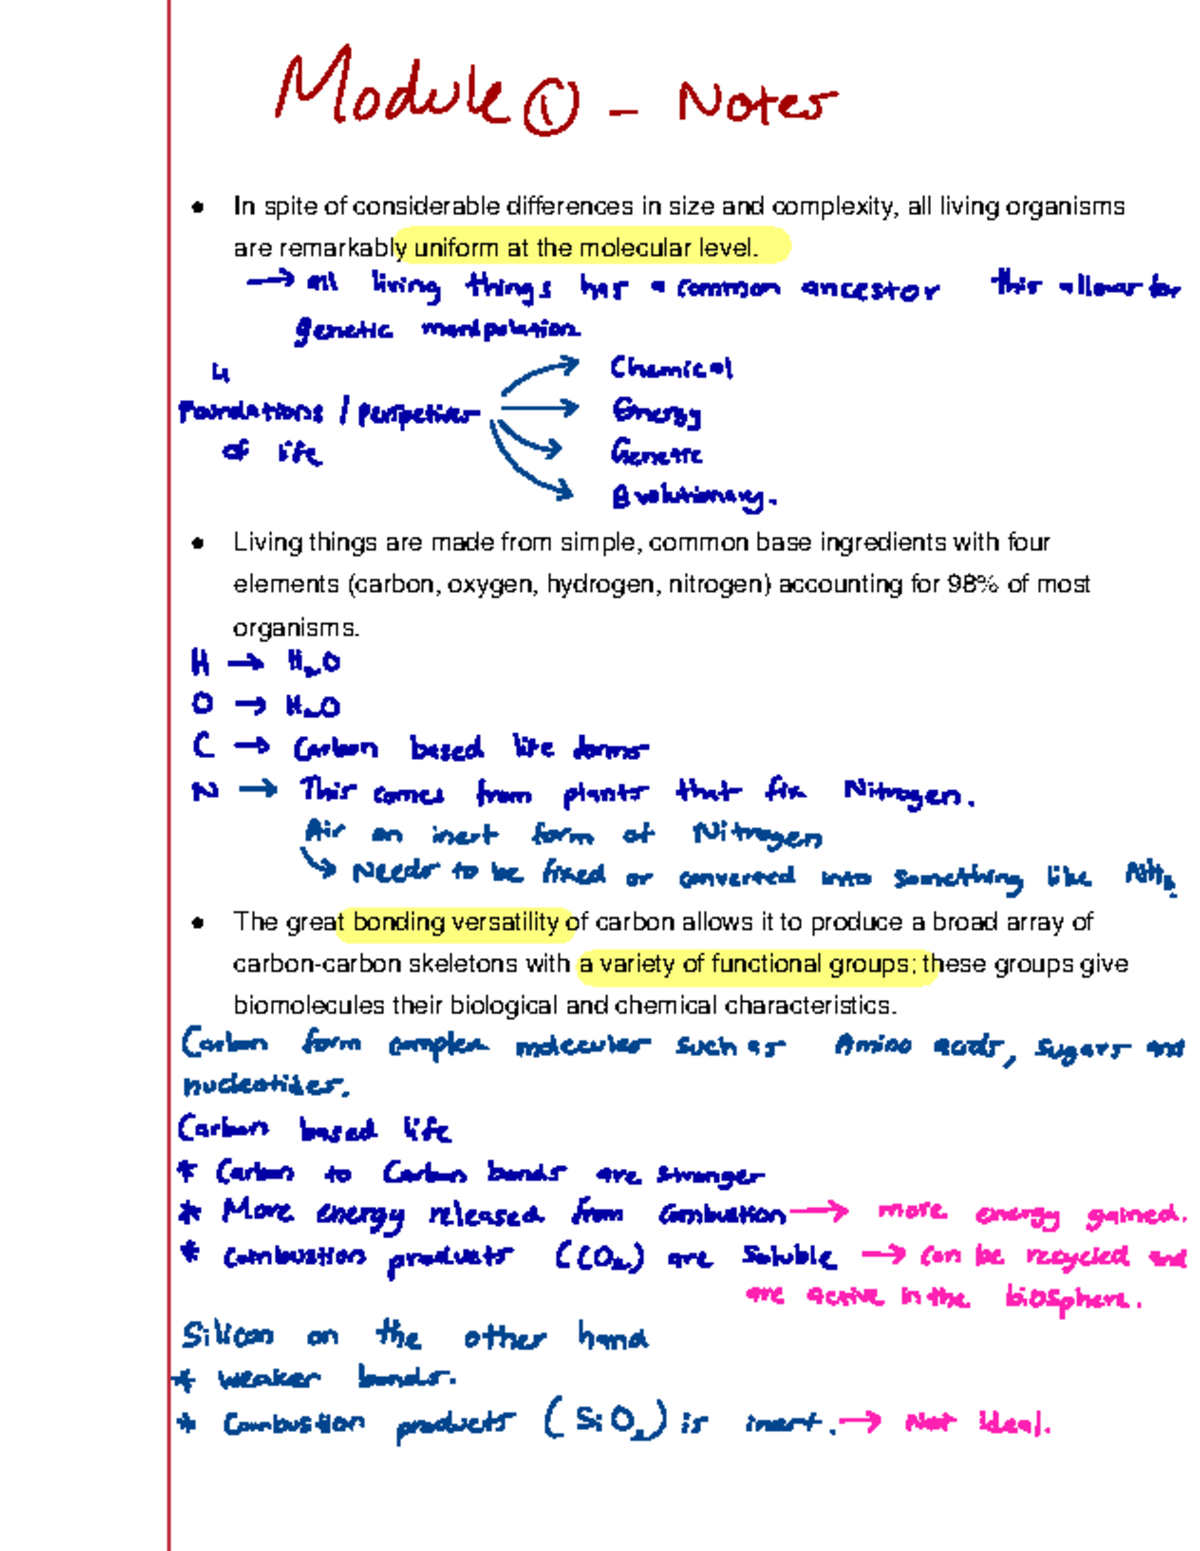 Module ① - Notes
● In spite of considerable differences in size and complexity, all living organisms
are remarkably uniform at the molecular level.
→ all living things has a common ancestor this allows for
genetic manipulation.
4
Foundations / perspectives
of life
→ Chemical
→ Energy
→ Genetic
→ Evolutionary.
● Living things are made from simple, common base ingredients with four
elements (carbon, oxygen, hydrogen, nitrogen) accounting for 98% of most
organisms.
H → H₂O
O → H₂O
C → Carbon based life forms
N → This comes from plants that fix Nitrogen.
Air an inert form of Nitrogen
↳ Needs to be fixed or converted into something like NH₃
● The great bonding versatility of carbon allows it to produce a broad array of
carbon-carbon skeletons with a variety of functional groups; these groups give
biomolecules their biological and chemical characteristics.
Carbon form complex molecules such as Amino acids, sugars and
nucleotides.
Carbon based life
* Carbon to Carbon bonds are stronger
* More energy released from combustion → more energy gained.
* Combustion products (CO₂) are soluble → can be recycled and
are active in the biosphere.
Silicon on the other hand
* weaker bonds.
* Combustion products (SiO₂) is inert. → Not ideal.